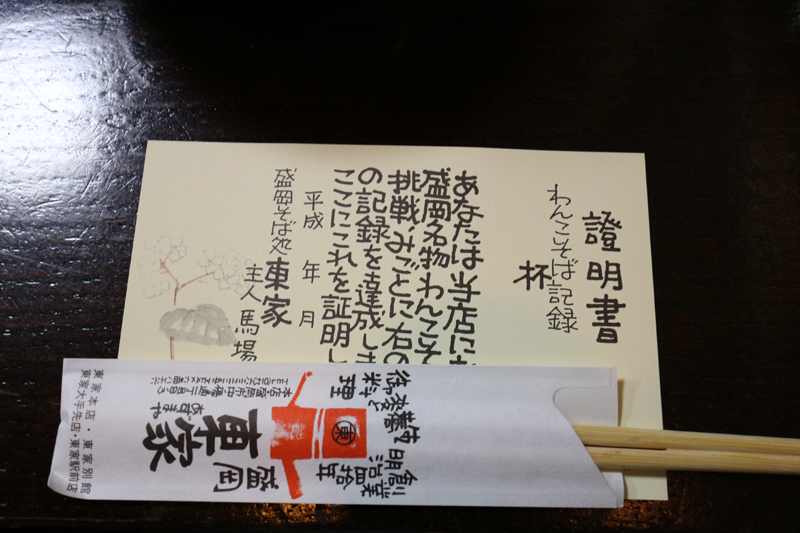 證明書
わんこそば記録
杯
あなたは当店にお
盛岡名物わんこそ
挑戦、みごとに右の
の記録を達成しま
ここにこれを証明し
平成 年 月
盛岡そば処 東家
主人 馬場
創業
明治四拾年
御蕎麦と
料理
東
盛岡
東家
あずまや
東家本店・東家別館
東家大手先店・東家駅前店